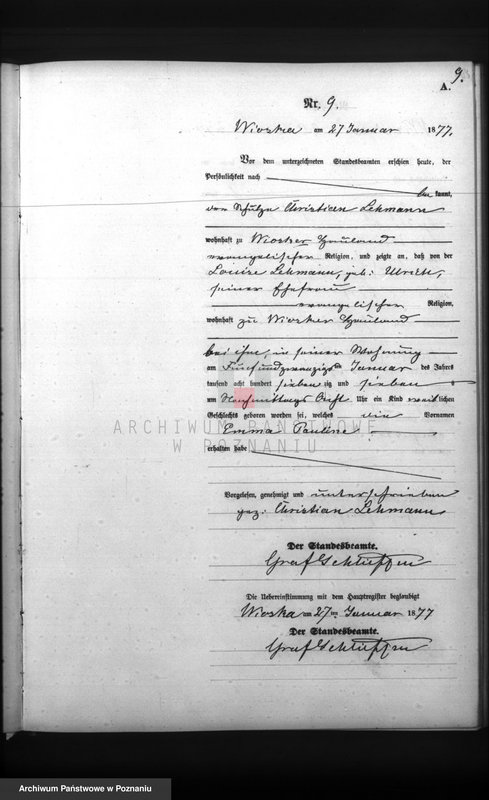 9.
A.
Nr. 9.
Wioska am 27 Januar 1877.
Vor dem unterzeichneten Standesbeamten erschien heute, der
Persönlichkeit nach
be kannt,
der Schulze Christian Lehmann
wohnhaft zu Wiosker Hauland
evangelischer Religion, und zeigte an, daß von der
Louise Lehmann, geb: Ulrich,
seiner Ehefrau
evangelischer Religion,
wohnhaft zu Wiosker Hauland
bei ihm, in seiner Wohnung
am Fünfundzwanzigsten Januar des Jahres
tausend acht hundert sieben zig und sieben
um Nachmittags Uhr ein Kind weiblichen
Geschlechts geboren worden sei, welches die Vornamen
Emma Pauline
erhalten habe
Vorgelesen, genehmigt und unterschrieben
gez: Christian Lehmann
Der Standesbeamte.
Graf Schlieffen
Die Uebereinstimmung mit dem Hauptregister beglaubigt
Wioska am 27ten Januar 1877
Der Standesbeamte.
Graf Schlieffen
ARCHIWUM PAŃSTWOWE
W POZNANIU
Archiwum Państwowe w Poznaniu